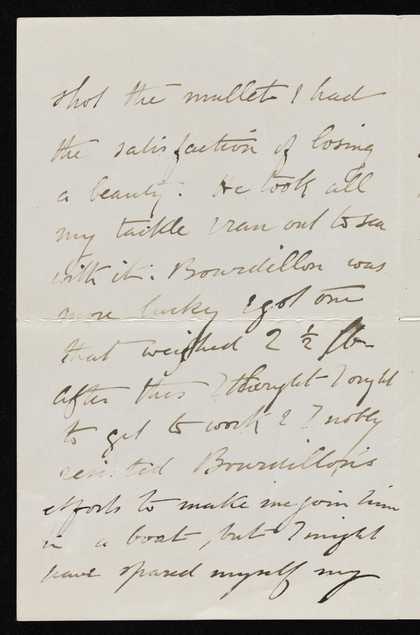 shot the mullet I had
the satisfaction of losing
a beauty: He took all
my tackle & ran out to sea
with it: Bourdillon was
more lucky & got one
that weighed 2 ½ lbs
After this I thought I ought
to get to work & I nobly
resisted Bourdillon's
efforts to make me join him
in a boat, but I might
have spared myself my